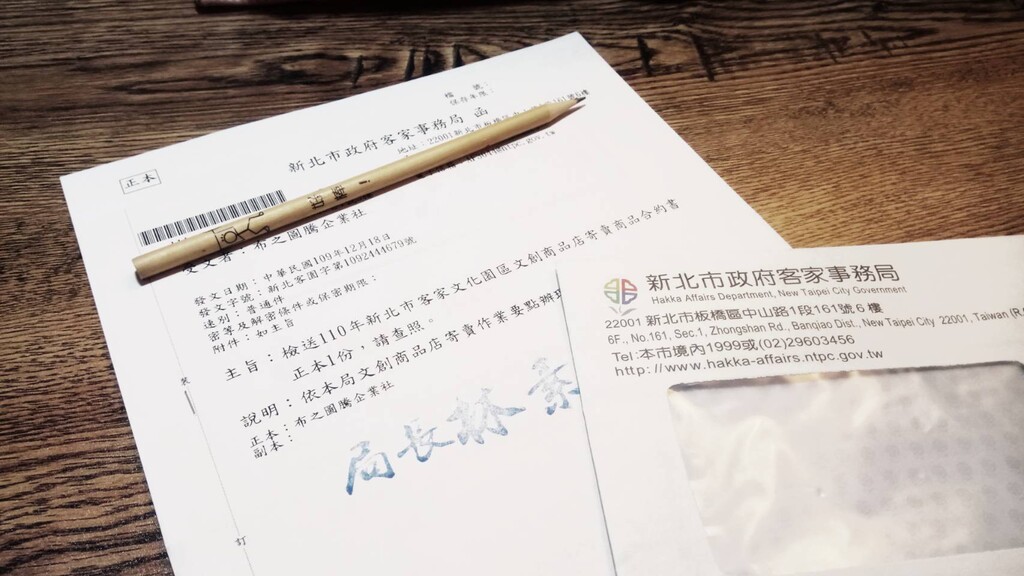 檔 號：
保存年限：
新北市政府客家事務局 函
地址：22001新北市板橋區中山路1段161號6樓
正本
受文者：布之圖騰企業社
發文日期：中華民國109年12月18日
發文字號：新北客園字第1092444679號
速別：普通件
密等及解密條件或保密期限：
附件：如主旨
主旨：檢送110年新北市客家文化園區文創商品店寄賣商品合約書
正本1份，請查照。
說明：依本局文創商品店寄賣作業要點辦理
正本：布之圖騰企業社
副本：
局長林
裝
訂
新北市政府客家事務局
Hakka Affairs Department, New Taipei City Government
22001 新北市板橋區中山路1段161號6樓
6F., No.161, Sec.1, Zhongshan Rd., Banqiao Dist., New Taipei City 22001, Taiwan (R.
Tel:本市境內1999或(02)29603456
http://www.hakka-affairs.ntpc.gov.tw